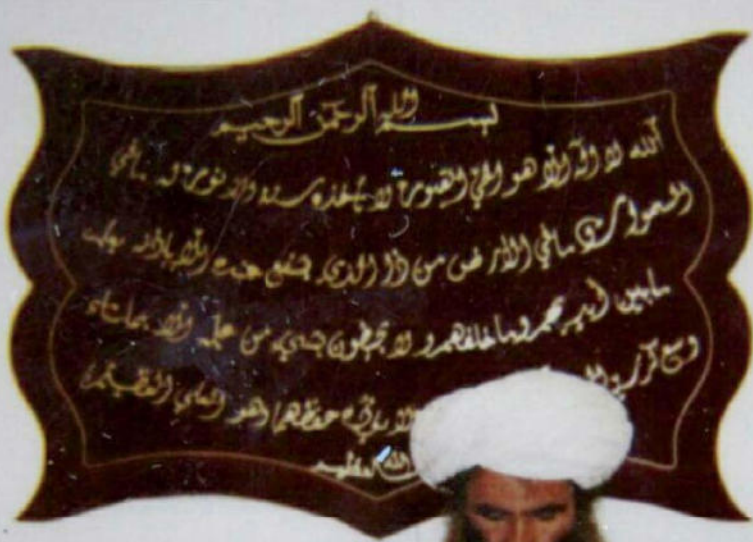 بسم الله الرحمن الرحيم
الله لا اله الا هو الحي القيوم لا تأخذه سنة ولا نوم له ما في
السموات وما في الأرض من ذا الذي يشفع عنده الا باذنه يعلم
ما بين أيديهم وما خلفهم ولا يحيطون بشيء من علمه الا بما شاء
وسع كرسيه ولا يؤده حفظهما وهو العلي العظيم
الله العظيم